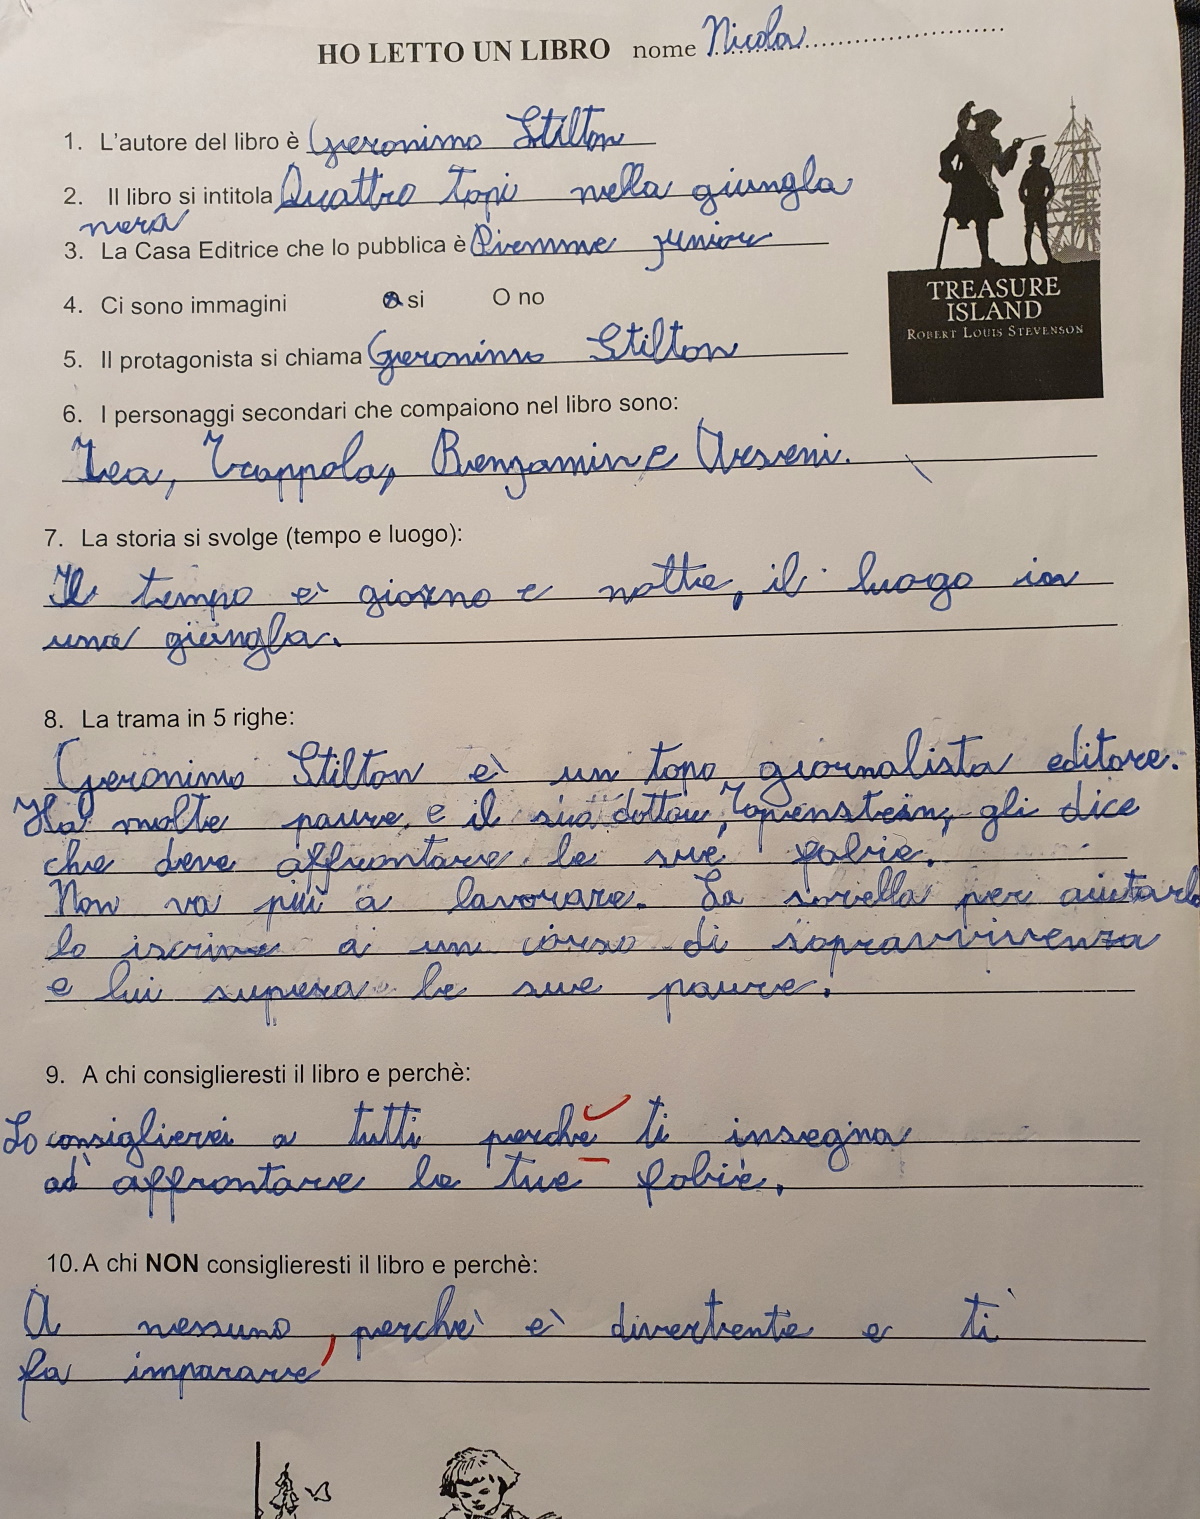 HO LETTO UN LIBRO nome Nicola
1. L'autore del libro è Geronimo Stilton
2. Il libro si intitola Quattro topi nella giungla
nera
3. La Casa Editrice che lo pubblica è Piemme junior
4. Ci sono immagini O si O no
5. Il protagonista si chiama Geronimo Stilton
TREASURE
ISLAND
ROBERT LOUIS STEVENSON
6. I personaggi secondari che compaiono nel libro sono:
Tea, Trappola, Benjamin e Arseni.
7. La storia si svolge (tempo e luogo):
Il tempo è giorno e notte, il luogo in
una giungla.
8. La trama in 5 righe:
Geronimo Stilton è un topo giornalista editore.
Ha molte paure e il suo dottor Topenstein, gli dice
che deve affrontare le sue fobie.
Non va più a lavorare. La sorella per aiutarlo
lo iscrive a un corso di sopravvivenza
e lui supera le sue paure.
9. A chi consiglieresti il libro e perchè:
Lo consiglierei a tutti perché ti insegna
ad affrontare le tue fobie.
10. A chi NON consiglieresti il libro e perchè:
A nessuno, perchè è divertente e ti
fa imparare